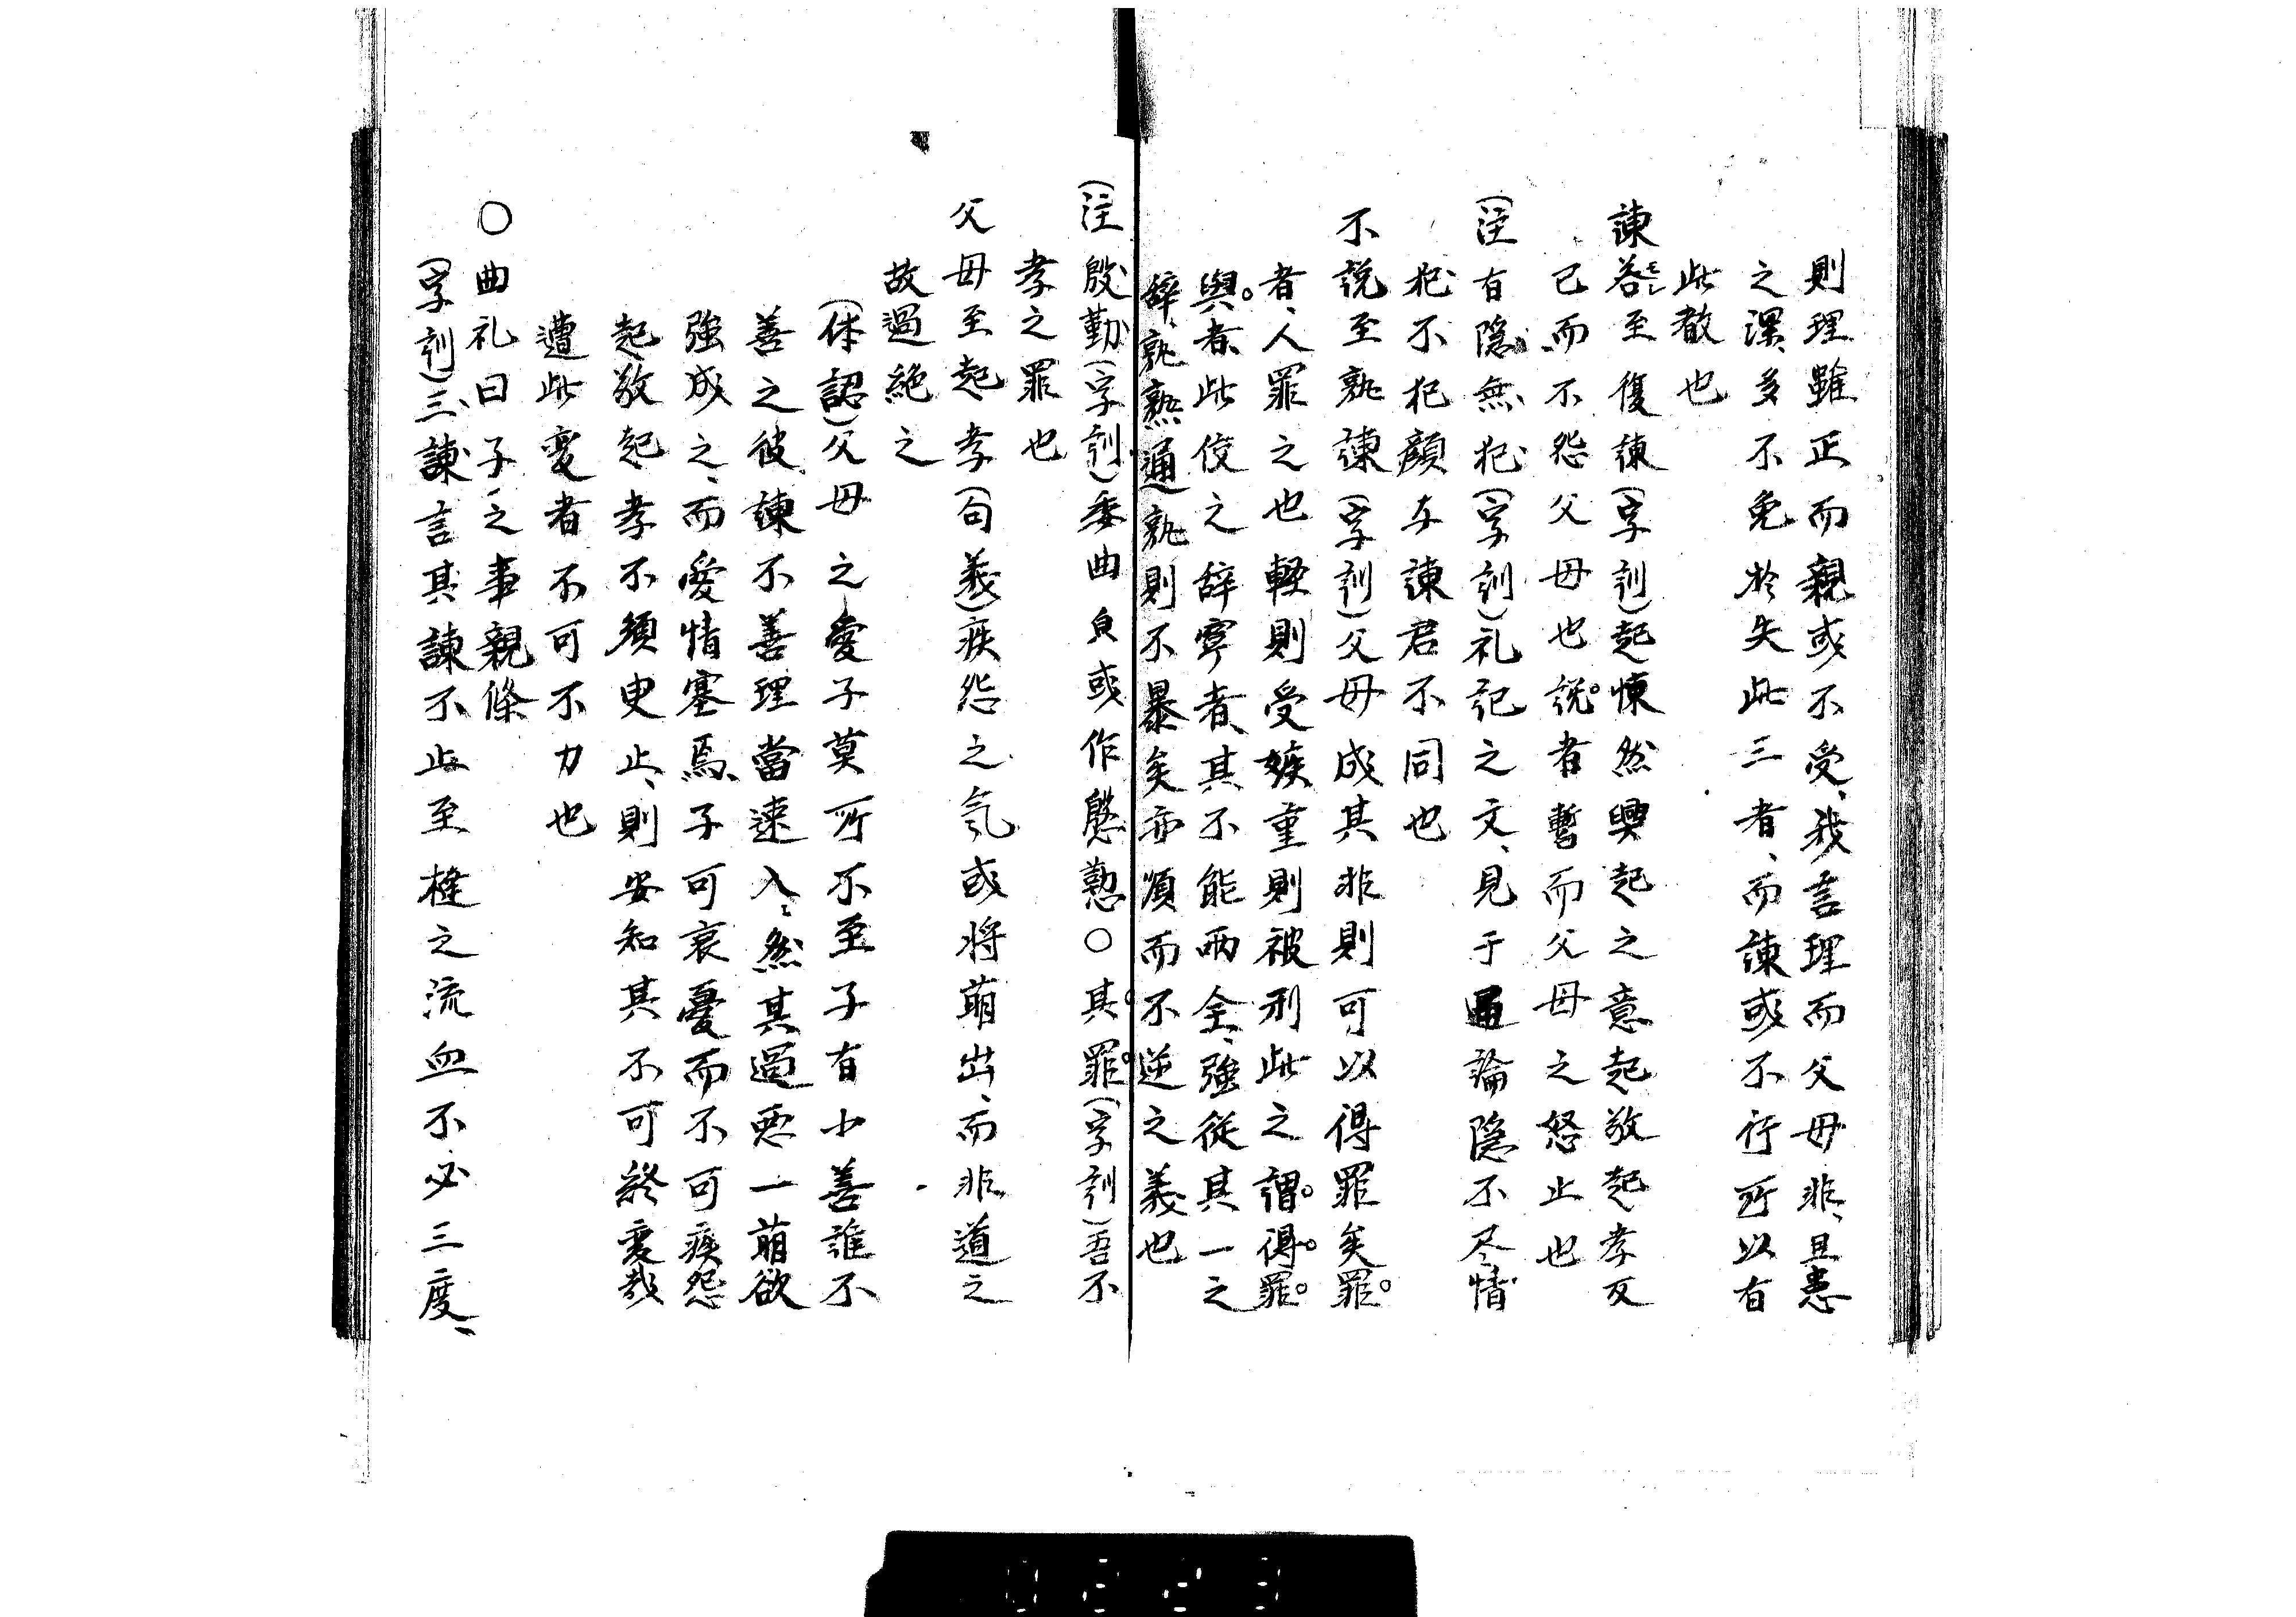 則理雖正而親或不受、我言理而父母非、且患
之深、多不免於失此三者、而諫或不行所以有
此教也
諫若至復諫(字訓)起悚然興起之意起敬起孝反
已而不怨父母也説者暫而父母之怒止也
(注有隠無犯(字訓)礼記之文、見于通論隠不尽情
犯不犯顔与諫君不同也
不説至熟諫(字訓)父母成其非則可以得罪矣罪
者、人罪之也軽則受嫉重則被刑此之謂得罪
與者、此佼之辞寧者、其不能両全、強從其一之
辞、孰熟通孰則不暴矣亦順而不逆之義也
(注殷勤(字訓)委曲皃或作慇懃○其罪(字訓)吾不
孝之罪也
父母至起孝(句義)疾怨之気或将萌出、而非道之
故過絶之
(体認)父母之愛子莫所不至子有小善誰不
善之彼諫不善理當速入、然其過悪一萌欲
強成之、而愛情塞焉、子可哀憂而不可疾怨
起敬起孝不須臾止、則安知其不可終変哉
遭此変者不可不力也
○曲礼曰子之事親條
(字訓)三諫言其諫不止至撻之流血不必三度、